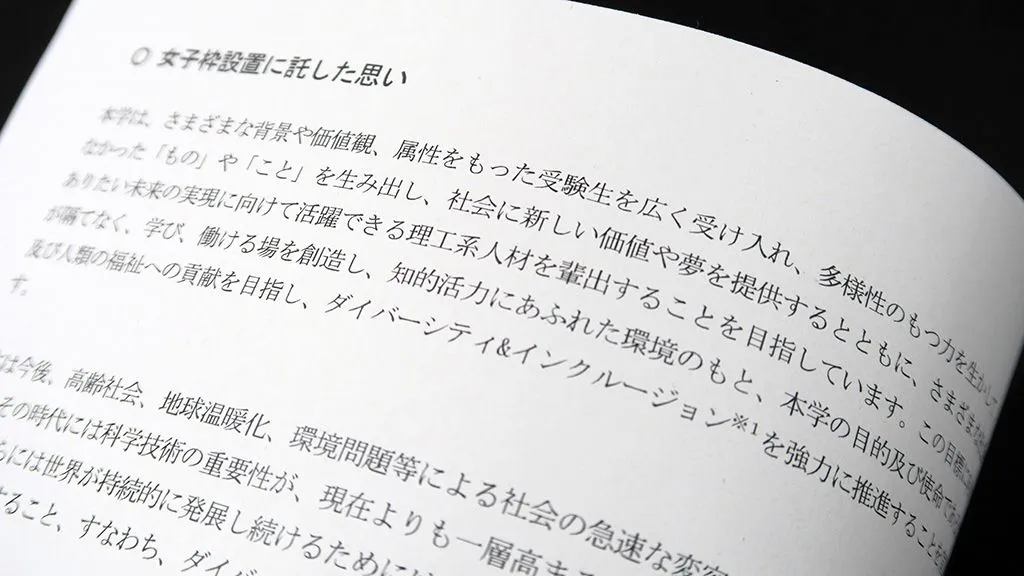 ○ 女子枠設置に託した思い
本学は、さまざまな背景や価値観、属性をもった受験生を広く受け入れ、多様性のもつ力を生かして
なかった「もの」や「こと」を生み出し、社会に新しい価値や夢を提供するとともに、さまざまな
ありたい未来の実現に向けて活躍できる理工系人材を輩出することを目指しています。この目標に
が隔てなく、学び、働ける場を創造し、知的活力にあふれた環境のもと、本学の目的及び使命であ
及び人類の福祉への貢献を目指し、ダイバーシティ&インクルージョン※1を強力に推進することを
す。
は今後、高齢社会、地球温暖化、環境問題等による社会の急速な変容
その時代には科学技術の重要性が、現在よりも一層高ま
らには世界が持続的に発展し続けるためには
すること、すなわち、ダイバ